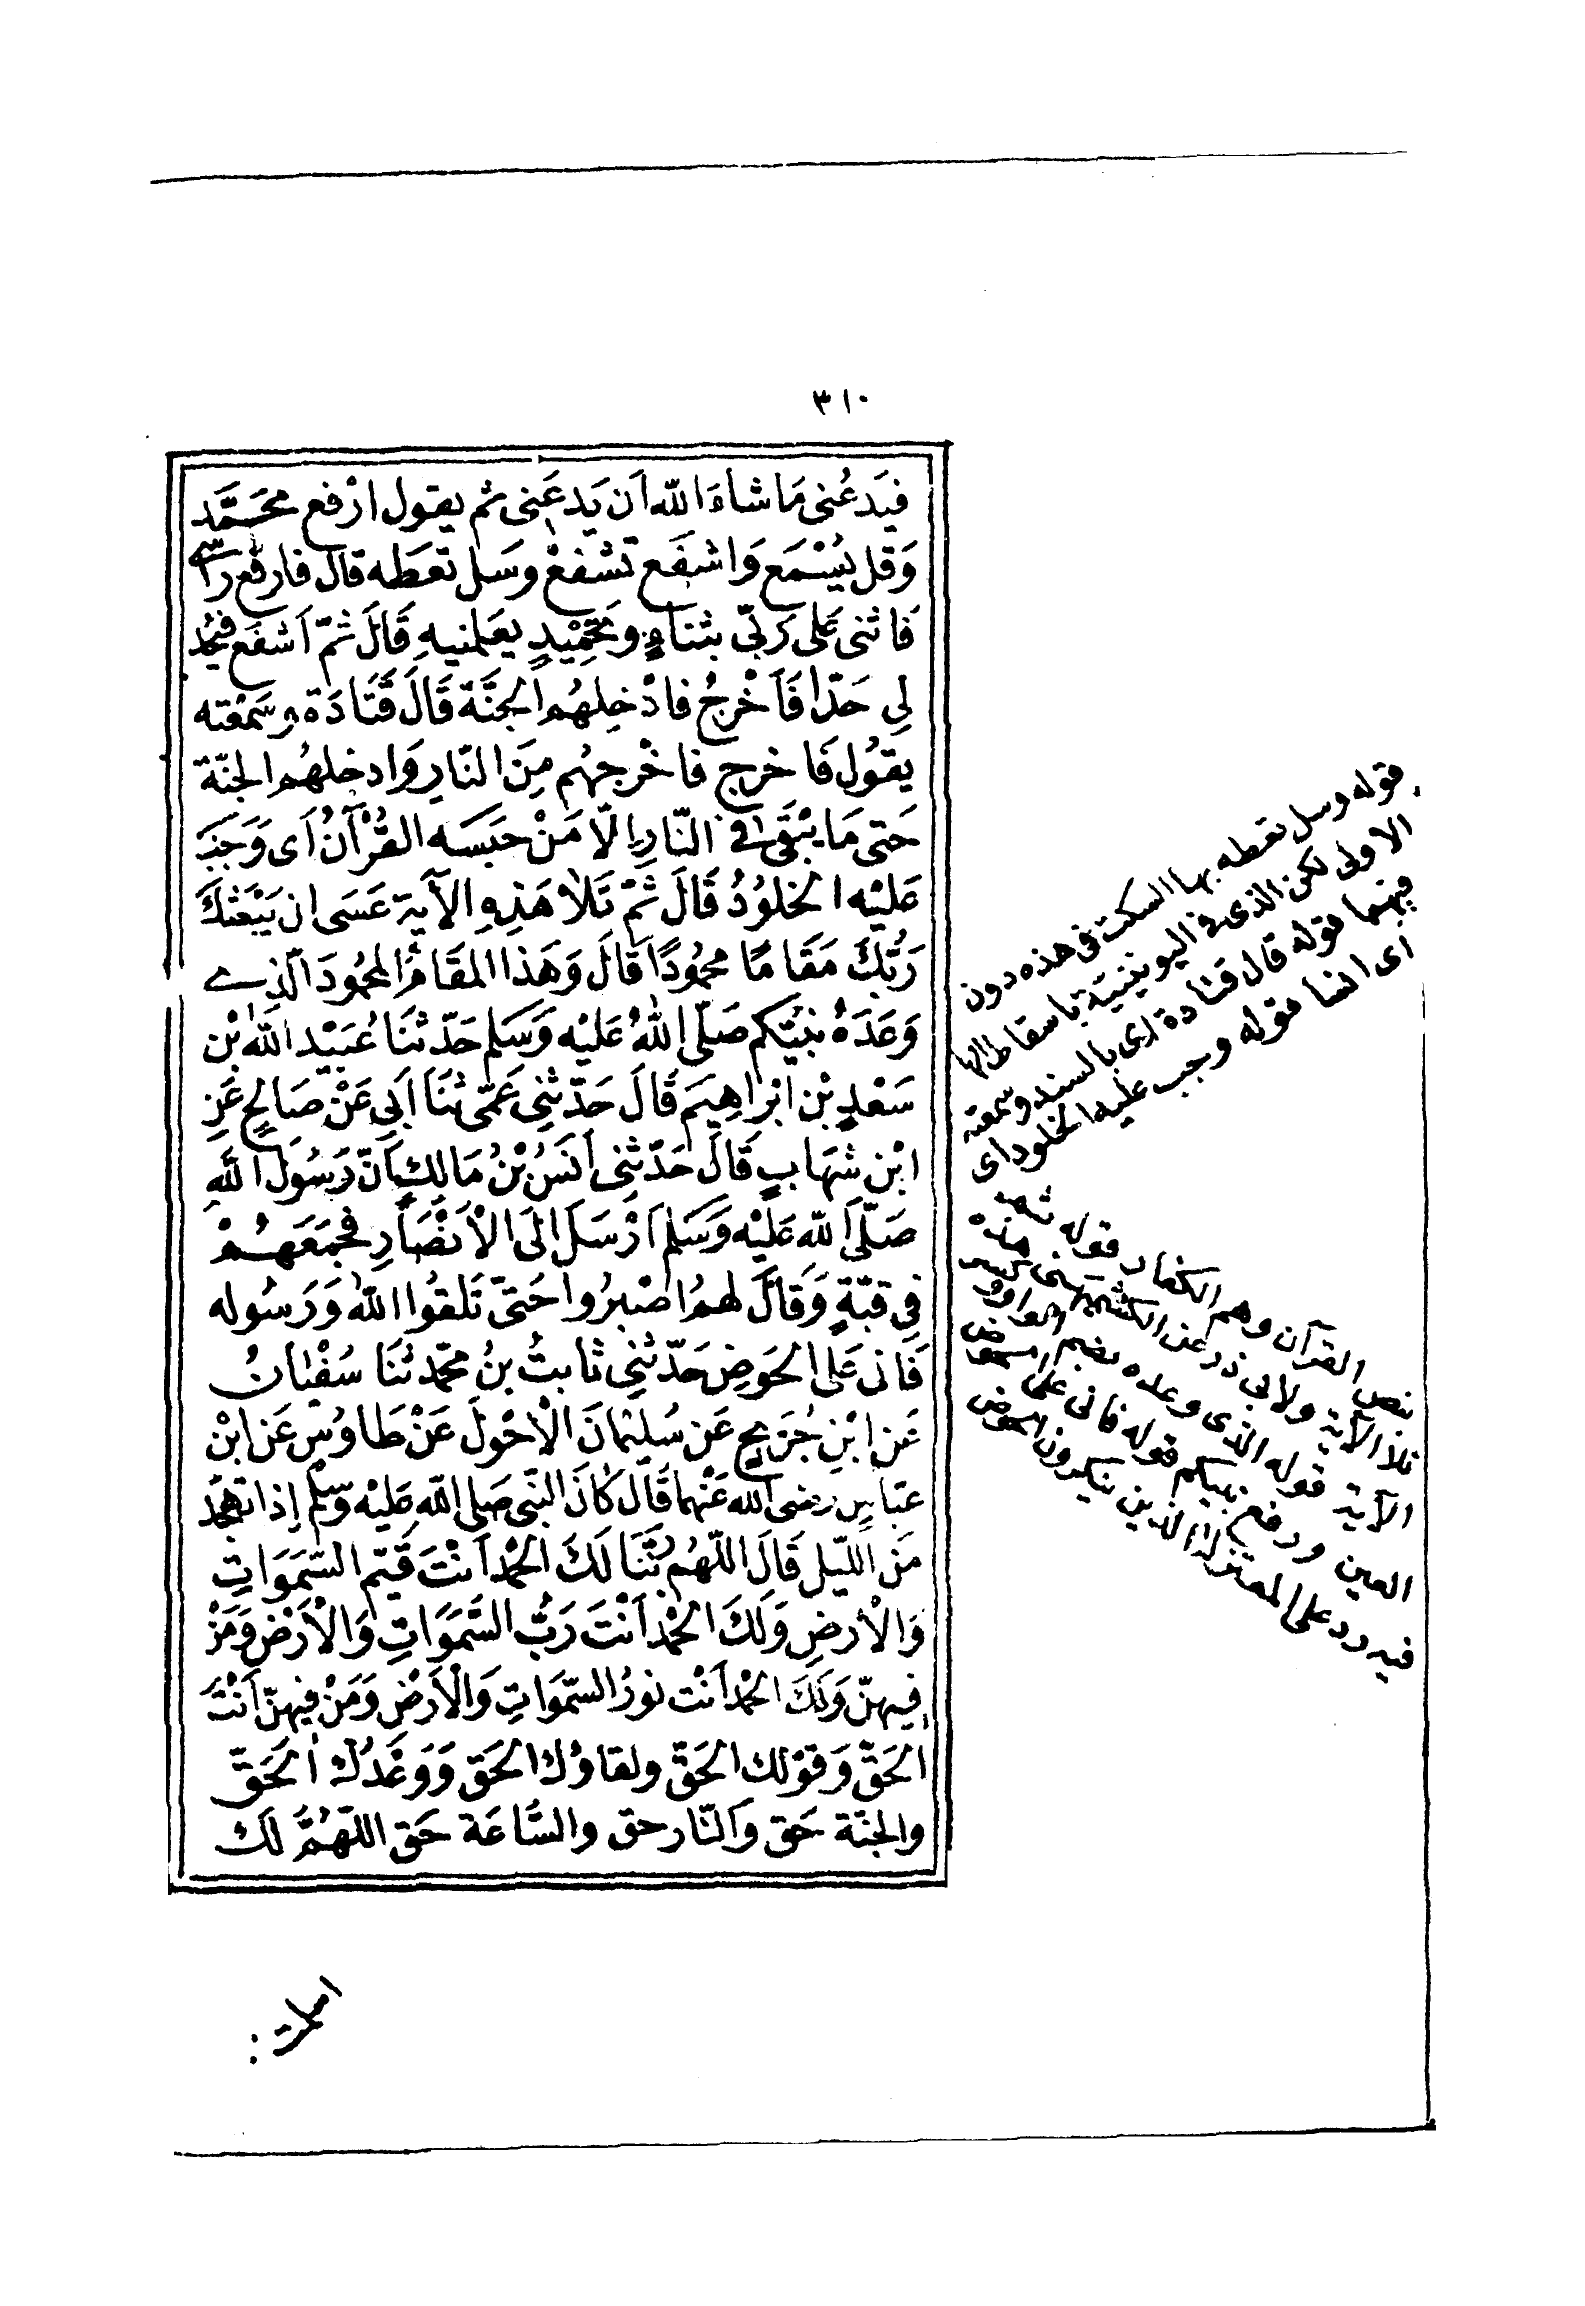 ٣١٠
فيَدعُنى مَا شاءَ الله اَن يَدعَنى ثم يقول ارْفع محَمَّد
وَقل يُسْمَع وَاشفَع تشفعْ وسَل تعطَه قال فارفع رَأسى
فاثنى عَلى رَبّى بثناءٍ وتحْمِيْدٍ يعَلمنيهِ قَالَ ثمّ اَشفَع فيَحُد
لِى حَدّا فَاَخْرجُ فادْخِلهُم الجنَّة قَالَ قَتَادَة وسَمعْته
يقوُل فَاخرج فاخْرجهُم مِنَ النّارِ وَادخلهُم الجنّة
حَتى مَا يبْقَى فى النّارِ اِلّا مَنْ حبَسَه القُرْآنُ اَى وَجَبَ
عَليْه الخلوُدُ قَالَ ثمّ تَلا هَذِهِ الآية عَسَى ان يَبْعَثكَ
رَبُّكَ مَقَامًا محمُودًا قَالَ وَهَذا المقَامُ المحُمودَ الّذِى
وَعَدَهُ نبيُّكم صَلّى اللهُ عَليْه وَسَلم حَدّثنَا عُبَيْد اللهِ بْن
سَعْدٍ بْن ابْراهِيَم قَالَ حَدّثنِى عَمّى ثنَا اَبى عَنْ صَالحٍ عَنِ
ابْن شهَابٍ قَالَ حَدّثنى اَنَسُ بْنُ مَالكٍ اَنّ رَسُول اللهِ
صَلّى الله عَليْه وَسَلم اَرْسَلَ اِلَى الْاَنْصَارِ فجمَعَهمْ
فى قبّةٍ وَقَالَ لهمُ اصْبرُوا حَتىّ تَلقوُا اللهَ وَرَسُوله
فَانى عَلى الحَوضِ حَدّثنِى ثابتُ بنُ محمّد ثنَا سُفْيَانُ
عَن ابْنِ جُرَيجٍ عَن سُليْمَانَ الْاَحْولَ عَنْ طاوُسٍ عَن ابْن
عبّاسٍ رضى الله عَنْهما قَالَ كَانَ النّبى صَلى الله عَليْه وسَلم إذا تهجّد
مَن اللّيل قَالَ اللّهُم رَبّنَا لَكَ الحمْد اَنْتَ قَيّم السّمَوَاتِ
وَالْاَرضِ وَلَكَ الحمْد اَنْتَ رَبّ السَّمَوَاتِ وَالْاَرْض وَمَنْ
فيهنّ وَلَكَ الحمْد اَنْت نورُ السّمَوَاتِ وَالْاَرْض وَمَنْ فيهنّ اَنْتَ
الحَقّ وَقوْلك الحَقّ ولقاؤك الحَق وَوَعْدُكَ الحَقّ
والجنّة حَق وَالنّار حق والسَّاعَة حَق اللّهُمَّ لَك
قوله وسل تعطه بهاء السكت فى هذه دون
الاولى لكن الذى فى اليونينية باسقاط الها
فيهما قوله قال قتادة اى بالسند وسمعته
اى انسا قوله وجب عليه الخلود اى
بنص القرآن وهم الكفار قوله ثم
تلا الآية ولابى ذر عن الكشميهنى هذه
الآية قوله الذى وعده بضم الواو وكسر
العين ورفع نبيكم قوله فانى على الحوض
فيه رد على المعتزلة الذين ينكرون الحوض
اسلمت :